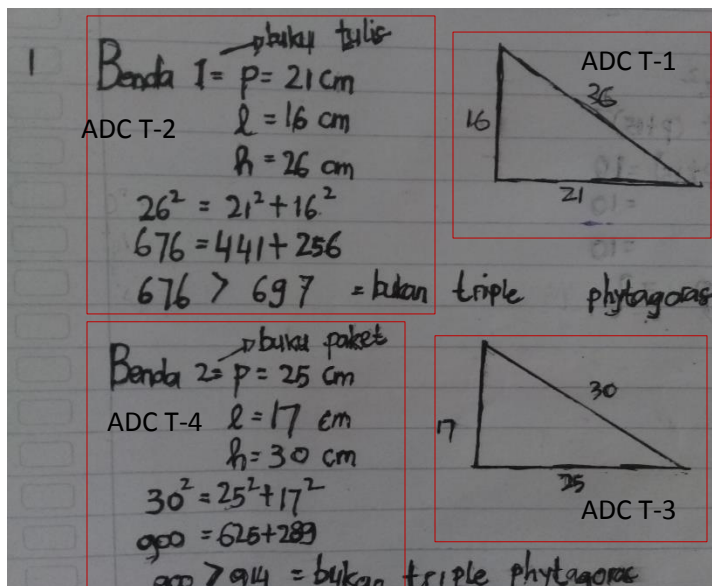 1 Benda 1 = p = 21 cm → buku tulis
ADC T-2 l = 16 cm
h = 26 cm
26² = 21² + 16²
676 = 441 + 256
676 > 697 = bukan triple phytagoras
ADC T-1
16
26
21
Benda 2 = p = 25 cm → buku paket
ADC T-4 l = 17 cm
h = 30 cm
30² = 25² + 17²
900 = 625 + 289
900 > 914 = bukan triple phytagoras
17
30
25
ADC T-3